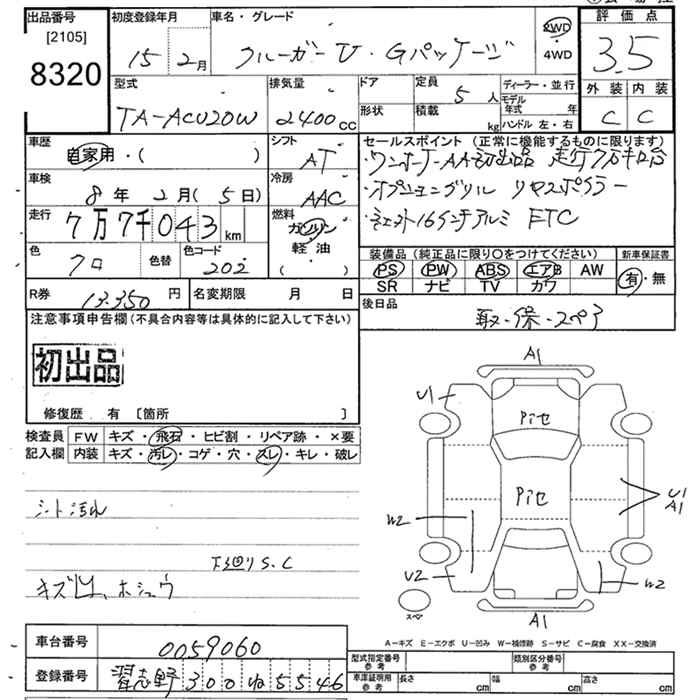 出品番号
[2105]
8320
初度登録年月
15 2月
車名・グレード
クルーガーV・Gパッケージ
2WD
・
4WD
評価点
3.5
外装 内装
C C
型式
TA-ACU20W
排気量
2400cc
ドア
形状
定員
5人
積載
kg
ディーラー・並行
モデル年式 年
ハンドル 左・右
車歴
自家用・( )
シフト
AT
セールスポイント (正常に機能するものに限ります)
・ワンオーナーAA初出品 走行7万キロ台
・オプショングリル リヤスポイラー
16インチアルミ ETC
車検
8年2月(5日)
冷房
AAC
走行
7万7千043km
燃料
ガソリン
軽油
( )
色
クロ
色替
色コード
202
装備品(純正品に限り○をつけてください)
PS PW ABS エアB AW
SR ナビ TV カワ
新車保証書
有・無
R券
13.350円
名変期限 月 日
後日品
取・保・スペア
注意事項申告欄(不具合内容等は具体的に記入して下さい)
初出品
修復歴 有 [箇所 ]
検査員
記入欄
FW キズ・飛石・ヒビ割・リペア跡・×要
内装 キズ・汚レ・コゲ・穴・スレ・キレ・破レ
シート汚れ
下回りS.C
ホシュウ
A1
U1
Piセ
Piセ
U1
A1
W2
U2
W2
スペア
A1
A-キズ E-エクボ U-凹み W-補修跡 S-サビ C-腐食 XX-交換済
車台番号
0059060
登録番号
習志野300ね5546
型式指定番号
参考
類別区分番号
参考
車庫証明用
参考
長さ cm
幅 cm
高さ cm